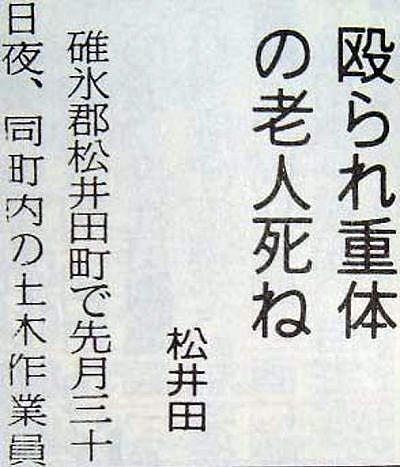 殴られ重体
の老人死ね
松井田
碓氷郡松井田町で先月三十
日夜、同町内の土木作業員